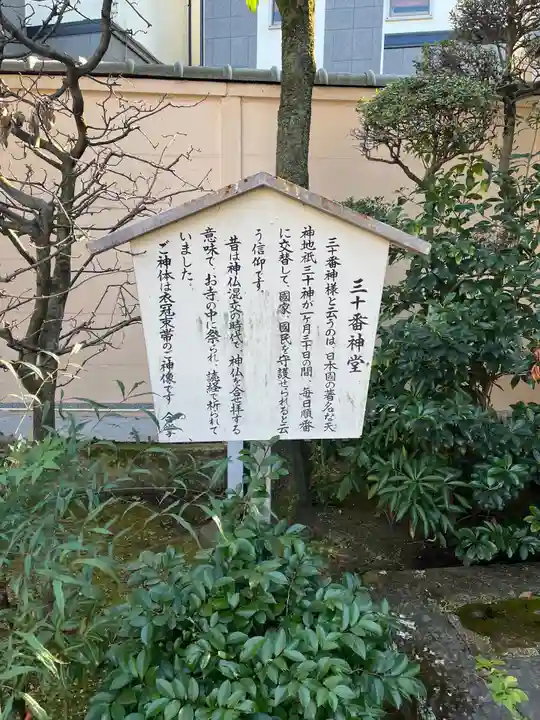 三十番神堂
三十番神様と云うのは、日本国の著名な天
神地祇三十神が一ヶ月三十日の間、毎日順番
に交替して、國家、国民を守護せられると云
う信仰です。
昔は神仏混交の時代で、神仏を合せ拝する
意味で、お寺の中に祭られ、読経で祈られて
いました。
ご神体は衣冠束帯のご神像です